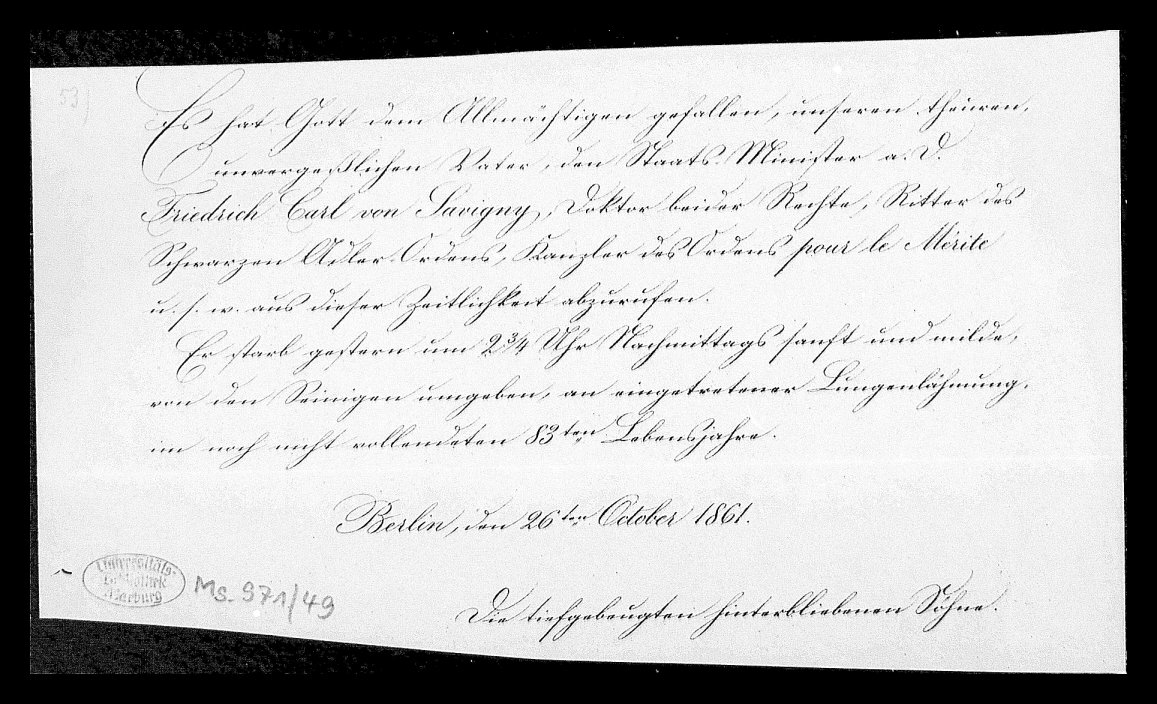 53)
Es hat Gott dem Allmächtigen gefallen, unseren theuren,
unvergeßlichen Vater, den Staats-Minister a. D.
Friedrich Carl von Savigny, Doktor beider Rechte, Ritter des
Schwarzen Adler-Ordens, Kanzler des Ordens pour le Mérite
u. s. w. aus dieser Zeitlichkeit abzurufen.
Er starb gestern um 2 3/4 Uhr Nachmittags sanft und milde,
von den Seinigen umgeben, an eingetretener Lungenlähmung,
im noch nicht vollendeten 83ten Lebensjahre.
Berlin, den 26ten October 1861.
Universitäts-
Bibliothek
Marburg
Ms. 971/49
Die tiefgebeugten hinterbliebenen Söhne.